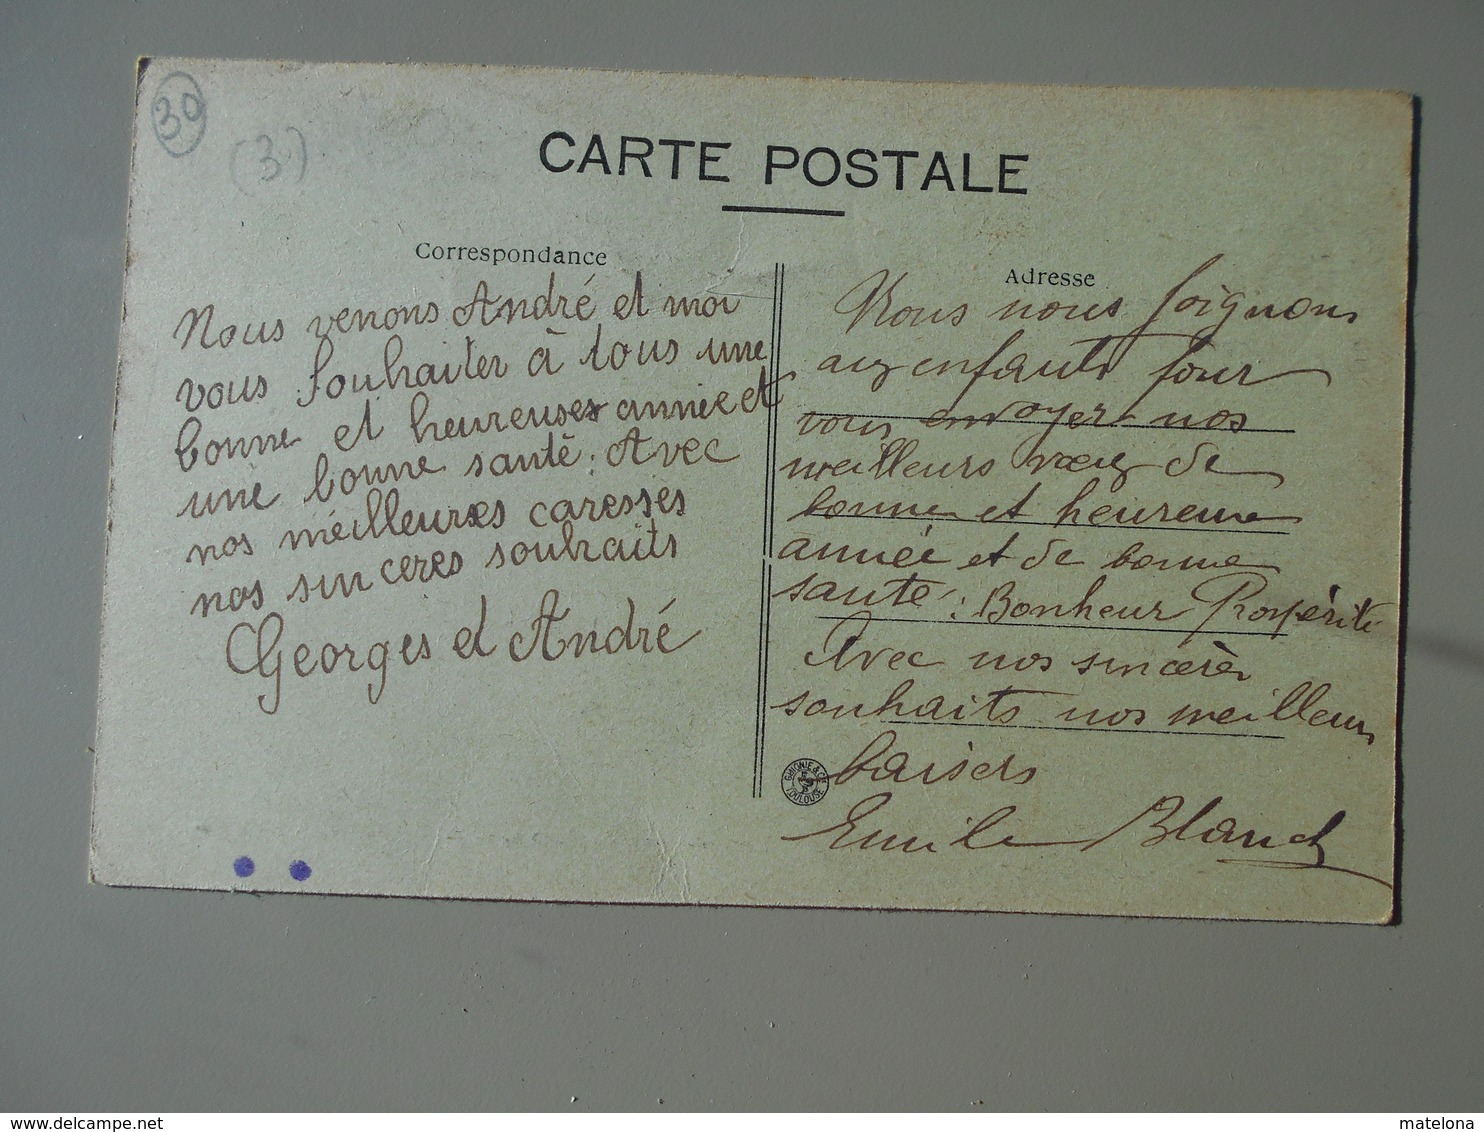 30
(3)
CARTE POSTALE
Correspondance
Nous venons André et moi
vous souhaiter à tous une
bonne et heureuses année et
une bonne santé : Avec
nos meilleures caresses
nos sinceres souhaits
Georges et André
Adresse
Nous nous joignons
aux enfants pour
vous envoyer nos
meilleurs vœux de
bonne et heureuse
année et de bonne
santé : Bonheur Prospérité
Avec nos sincères
souhaits nos meilleurs
baisers
Emile Blanch
GHIONIE & Cie
TOULOUSE
www.delcampe.net
matelona